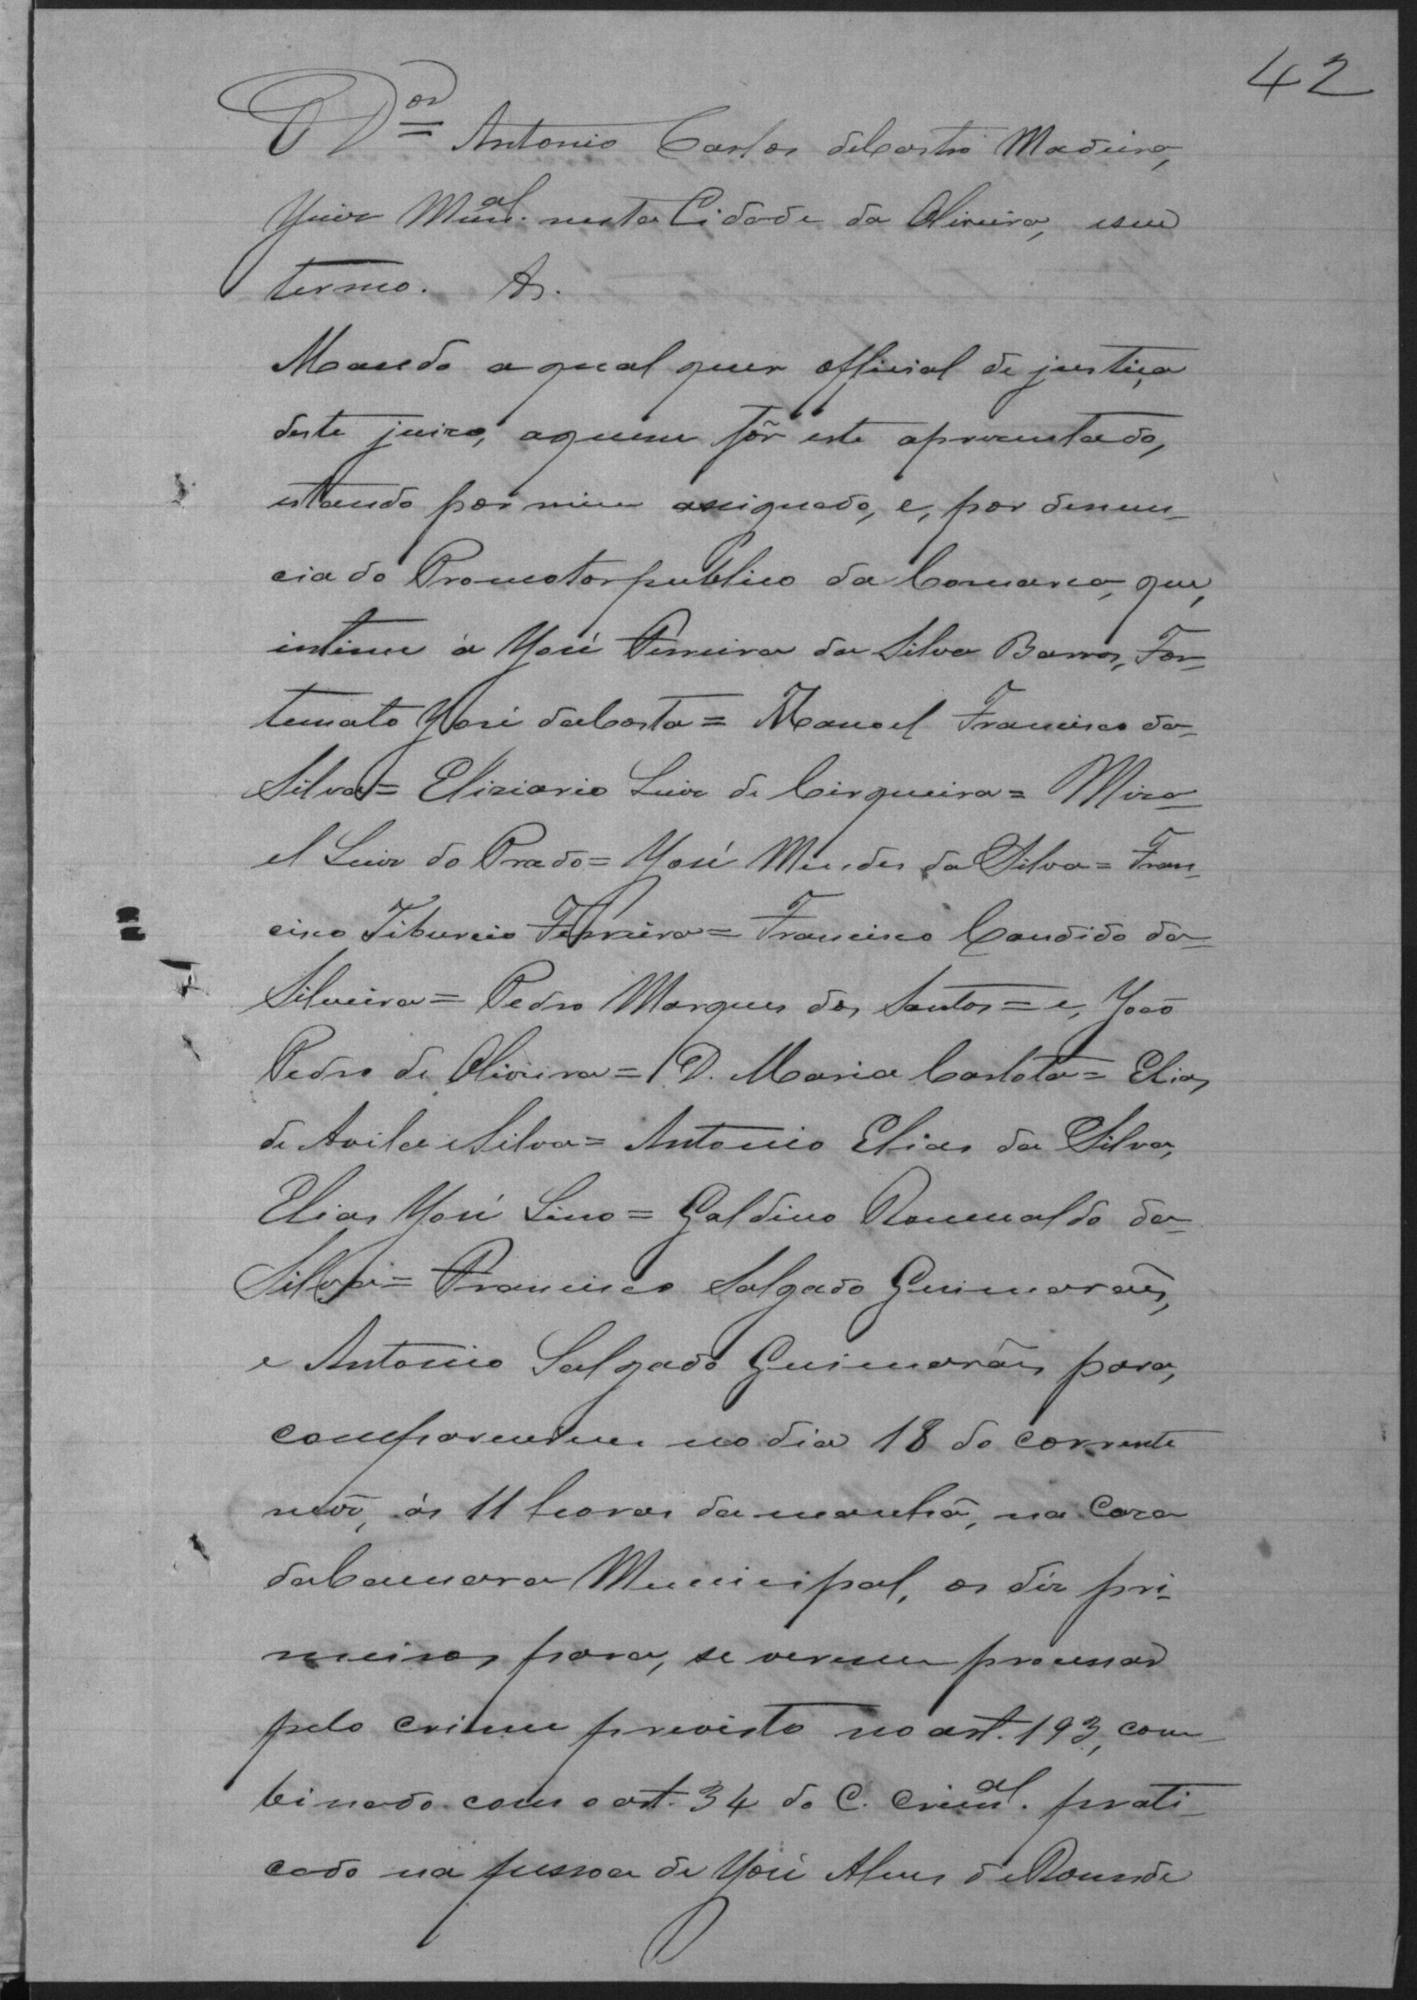 42
O D.or Antonio Carlos de Castro Madeira,
Juiz Mun.al nesta Cidade da Oliveira, e seu
termo. &.
Mando a qual quer official de justiça
deste juizo, a quem fôr este apresentado,
estando por mim assignado, e, por denun-
cia do Promotor publico da Comarca, que,
intime á José Ferreira da Silva Barros, For-
tunato José da Costa = Manoel Francisco da
Silva = Eliziario Luiz de Cirqueira = Miza-
el Luiz do Prado = José Mendes da Silva = Fran-
cisco Tiburcio Ferreira = Francisco Candido da
Silveira = Pedro Marques dos Santos = e, João
Pedro de Oliveira = D. Maria Carlota = Elias
de Avila e Silva = Antonio Elias da Silva,
Elias José Lino = Galdino Romualdo da
Silva = Francisco Salgado Guimarães,
e Antonio Salgado Guimarães para,
comparecerem no dia 18 do corrente
ás 11 horas da manhã, na Caza
da Camara Municipal, os déz pri-
meiros para, se verem processar
pelo crime previsto no art. 193, com-
binado com o art. 34 do C. Crim.al prati-
cado na pessoa de José Alves de Rezende